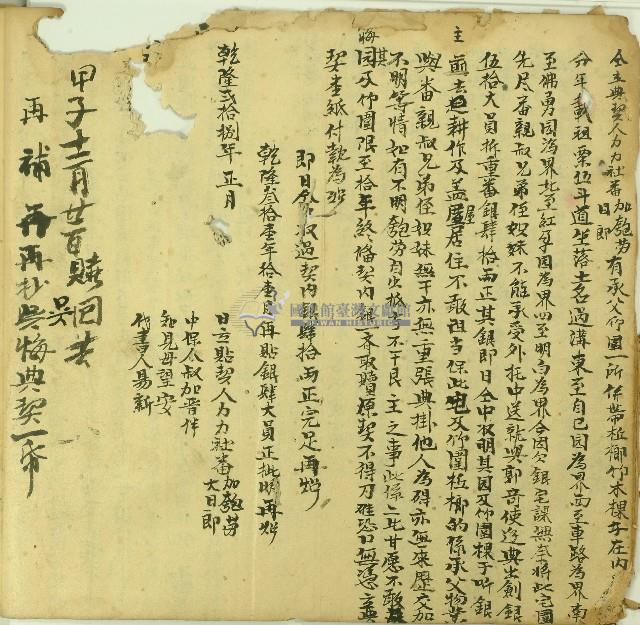 仝立典契人力力社番加匏劳大日即有承父竹園一所係帶梹榔竹木棵子在内
分年載租粟伍斗道坐落土名過溝東至自已园為界西至車路為界南
至佛勇园為界北至紅牙园為界四至明白為界今因欠銀完課無奈將此宅園
先尽番親叔兄弟侄姐妹不能承受外托中送就與郭奇使邊典出劍銀
伍拾大員折重番銀肆拾両正其銀即日仝中收明其园及竹圍棵子听銀
主前去耕作及盖屋居住不敢阻当保此地及竹圍梹榔的係承父物業
與番親叔兄弟侄姐妹無干亦無重張典掛他人為碍亦無來歷交加
不明等情如有不明匏劳自出抵不干艮主之事此係二比甘愿不敢
悔其园及竹圍限至拾年終俻契内銀一齊取贖原契不得刁难恐口無憑立典
契壹紙付執為炤
即日仝收過契内銀肆拾両正完足再炤
乾隆弍拾捌年正月
乾隆叁拾壹年拾壹月再貼銀肆大員正批明再炤
日立貼契人力力社番加匏劳大日即
中保人叔加晋伴
知見母望安
代書人易新
甲子十二月廿日贖回去
再補吳再抄吳悔典契一紙
國史館臺灣文獻館
TAIWAN HISTORICA